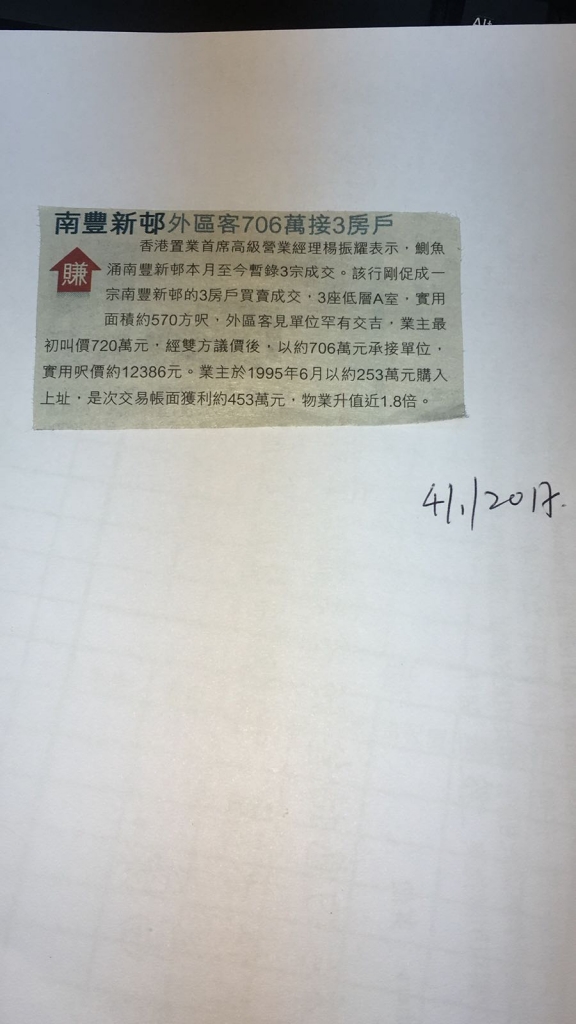 Alt
南豐新邨外區客706萬接3房戶
賺
香港置業首席高級營業經理楊振耀表示，鰂魚
涌南豐新邨本月至今暫錄3宗成交。該行剛促成一
宗南豐新邨的3房戶買賣成交，3座低層A室，實用
面積約570方呎，外區客見單位罕有交吉，業主最
初叫價720萬元，經雙方議價後，以約706萬元承接單位，
實用呎價約12386元。業主於1995年6月以約253萬元購入
上址，是次交易帳面獲利約453萬元，物業升值近1.8倍。
4/1/2017.